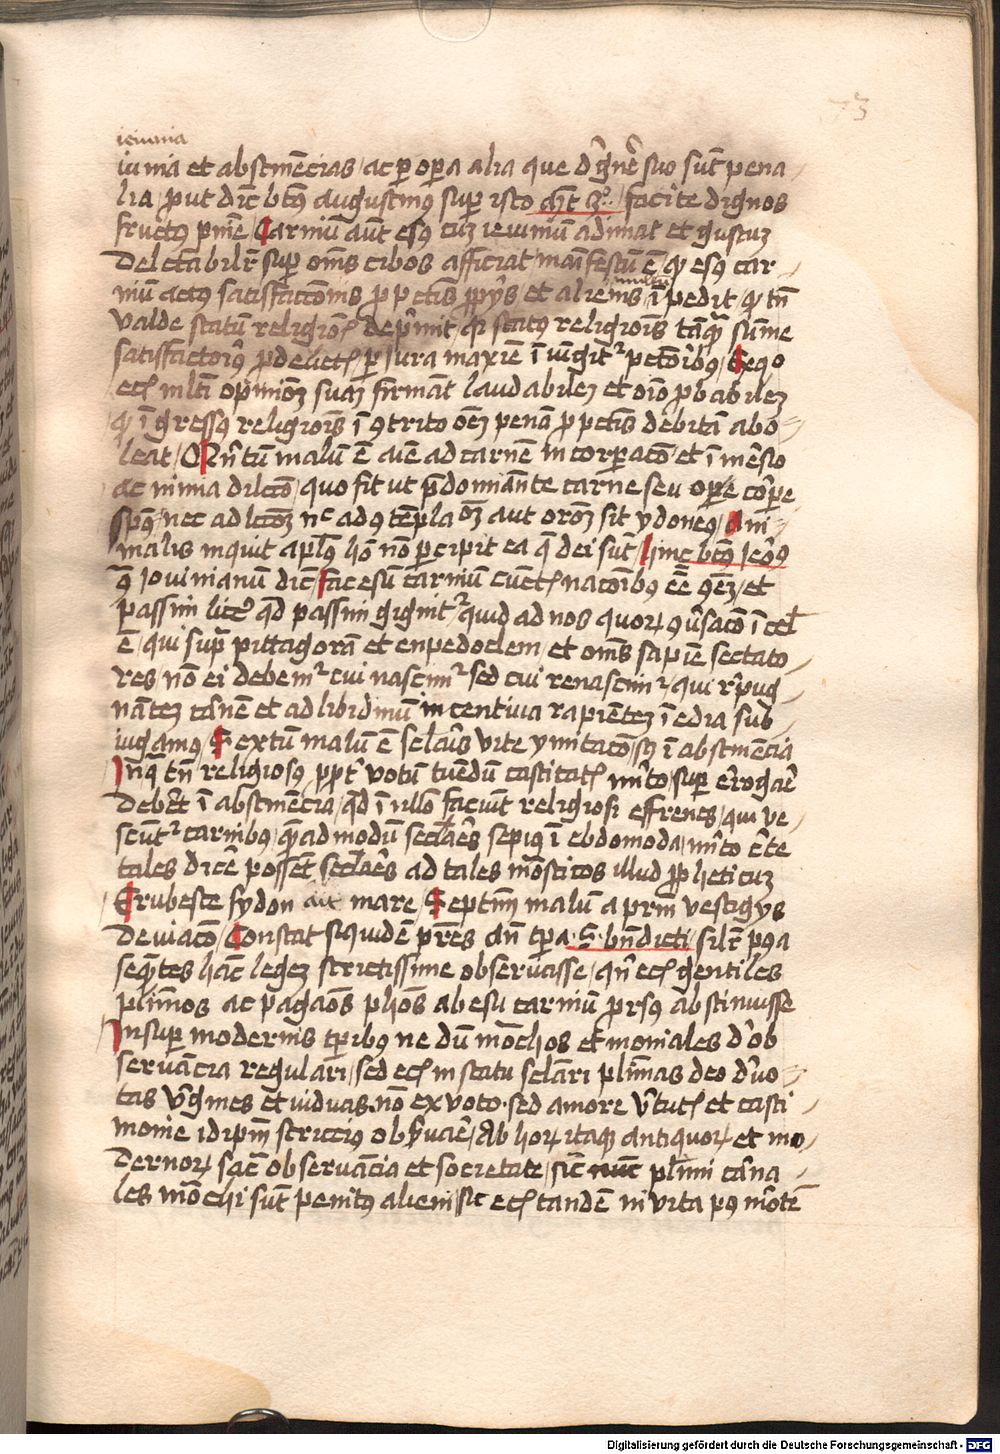 73
ieiunia
iunia et abstinēcias / ac p opa alia que d' gn̄e suo sūt pena
lia / put dic̄ btūs augustinus sup isto Mt 3º / facite dignos
fructus pnīe Carniū aūt esus cuz ieiuniū adimat et gustuz
delectabilr̄ sup om̄s cibos afficiat / manifestū ē / qp esus car
niū actus satisfactōnis p pctīs ppijs et alienis multū īpedit / qp tn̄
valde statū religiōis dep̄mit / qz status religionis tāqz sūme
satisfactoriꝰ p delictis p iura maxīe ī iūgitr petōribus / Seqō
ecī mlti opinioēz suaz firmāt laudabilez et oīo pbabilez
qp īgressus religionis ī ꝯtrito oēz penā p pctīs debitā abo
leat / Qintū malū ē aīe ad carnē incorpacō / et īmēsio
ac nimia dilcō / quo fit ut p̄domiante carne seu ope cōpe
spūs / nec ad lcōēz nc ad ꝯtēplaōēz aut orōēz sit ydoneus / Ani
malis inquit apls hō nō pcipit ea q̄ dei sūt / hinc btūs Ieōꝰ
ꝯ Iouinianū dic̄ / fac esū carniū cūctis nacōibus eē ꝯēz / et
passim licē qd passim gignitr / quid ad nos quoꝝ ꝯūsacō ī cel
ē / qui sup pittagorā et enpedoclem / et om̄s sapīe sectato
res / nō ei debem' cui nascim' sed cui renascim' / qui rpug
nātez carnē et ad libidinū incentiua rapiētez īedia sub
iugamus / Sextū malū ē sclāris vite ymitacō / sꝫ ī abstinēcia
Inq̄ tn̄ religiosus ppt' votū tuēdū castitatis m'to sup erogaē
debet ī abstinēcia / qd ī illō faciūt religiosi effrenes / qui ve
scūtr carnibus / quēadmodū seclāes sepius ī ebdomoda / m'to cte
tales dicē possēt seclāes ad tales mōsticos illud ppheticuz
Erubesce sydon ait mare / Septimū malū a prm̄ vestigijs
deuiacō / Constat siquidē prēs an̄ tpa S. bn̄dicti / silr pꝯa
sequētes hāc legez strictissime obseruasse / qn̄ ecī gentiles
plīmos ac paganōs phōs ab esu carniū prsus abstinuisse
Insup modernis tpibus ne dū mōchos et moniales d' ob
seruācia regulari / sed ecī in statu sclāri plīmas deo d'uo
tas v'gines et viduas . nō ex voto . sed amore v'tutis et casti
monie idipm strictius obsuaē / Ab hoꝝ itaqz antiquoꝝ et mo
dernoꝝ sac̄ obseruācia et societate / sic nūc plīmi carna
les mōchi sūt penitus alieni / sic ecī tandē in vita pꝯ mōtē
Digitalisierung gefördert durch die Deutsche Forschungsgemeinschaft - DFG